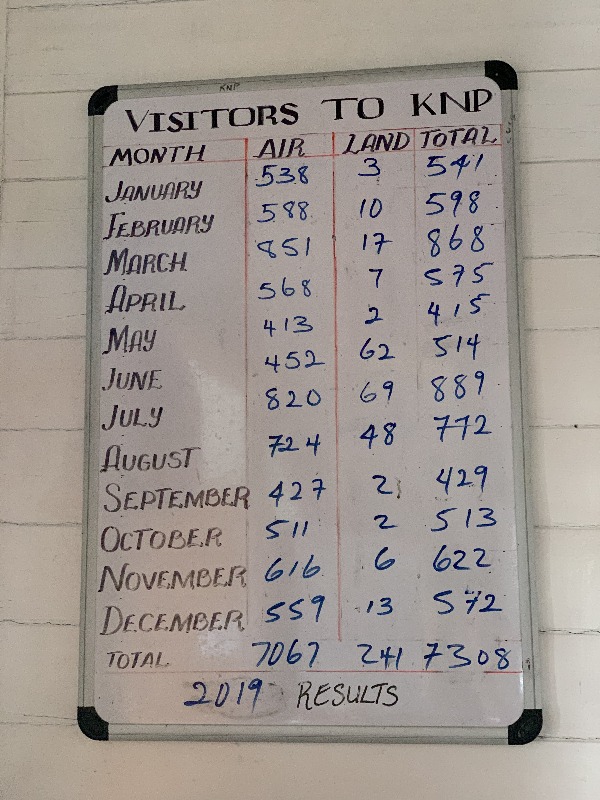 KNP
VISITORS TO KNP
MONTH AIR LAND TOTAL
JANUARY 538 3 541
FEBRUARY 588 10 598
MARCH 851 17 868
APRIL 568 7 575
MAY 413 2 415
JUNE 452 62 514
JULY 820 69 889
AUGUST 724 48 772
SEPTEMBER 427 2 429
OCTOBER 511 2 513
NOVEMBER 616 6 622
DECEMBER 559 13 572
TOTAL 7067 241 7308
2019 RESULTS